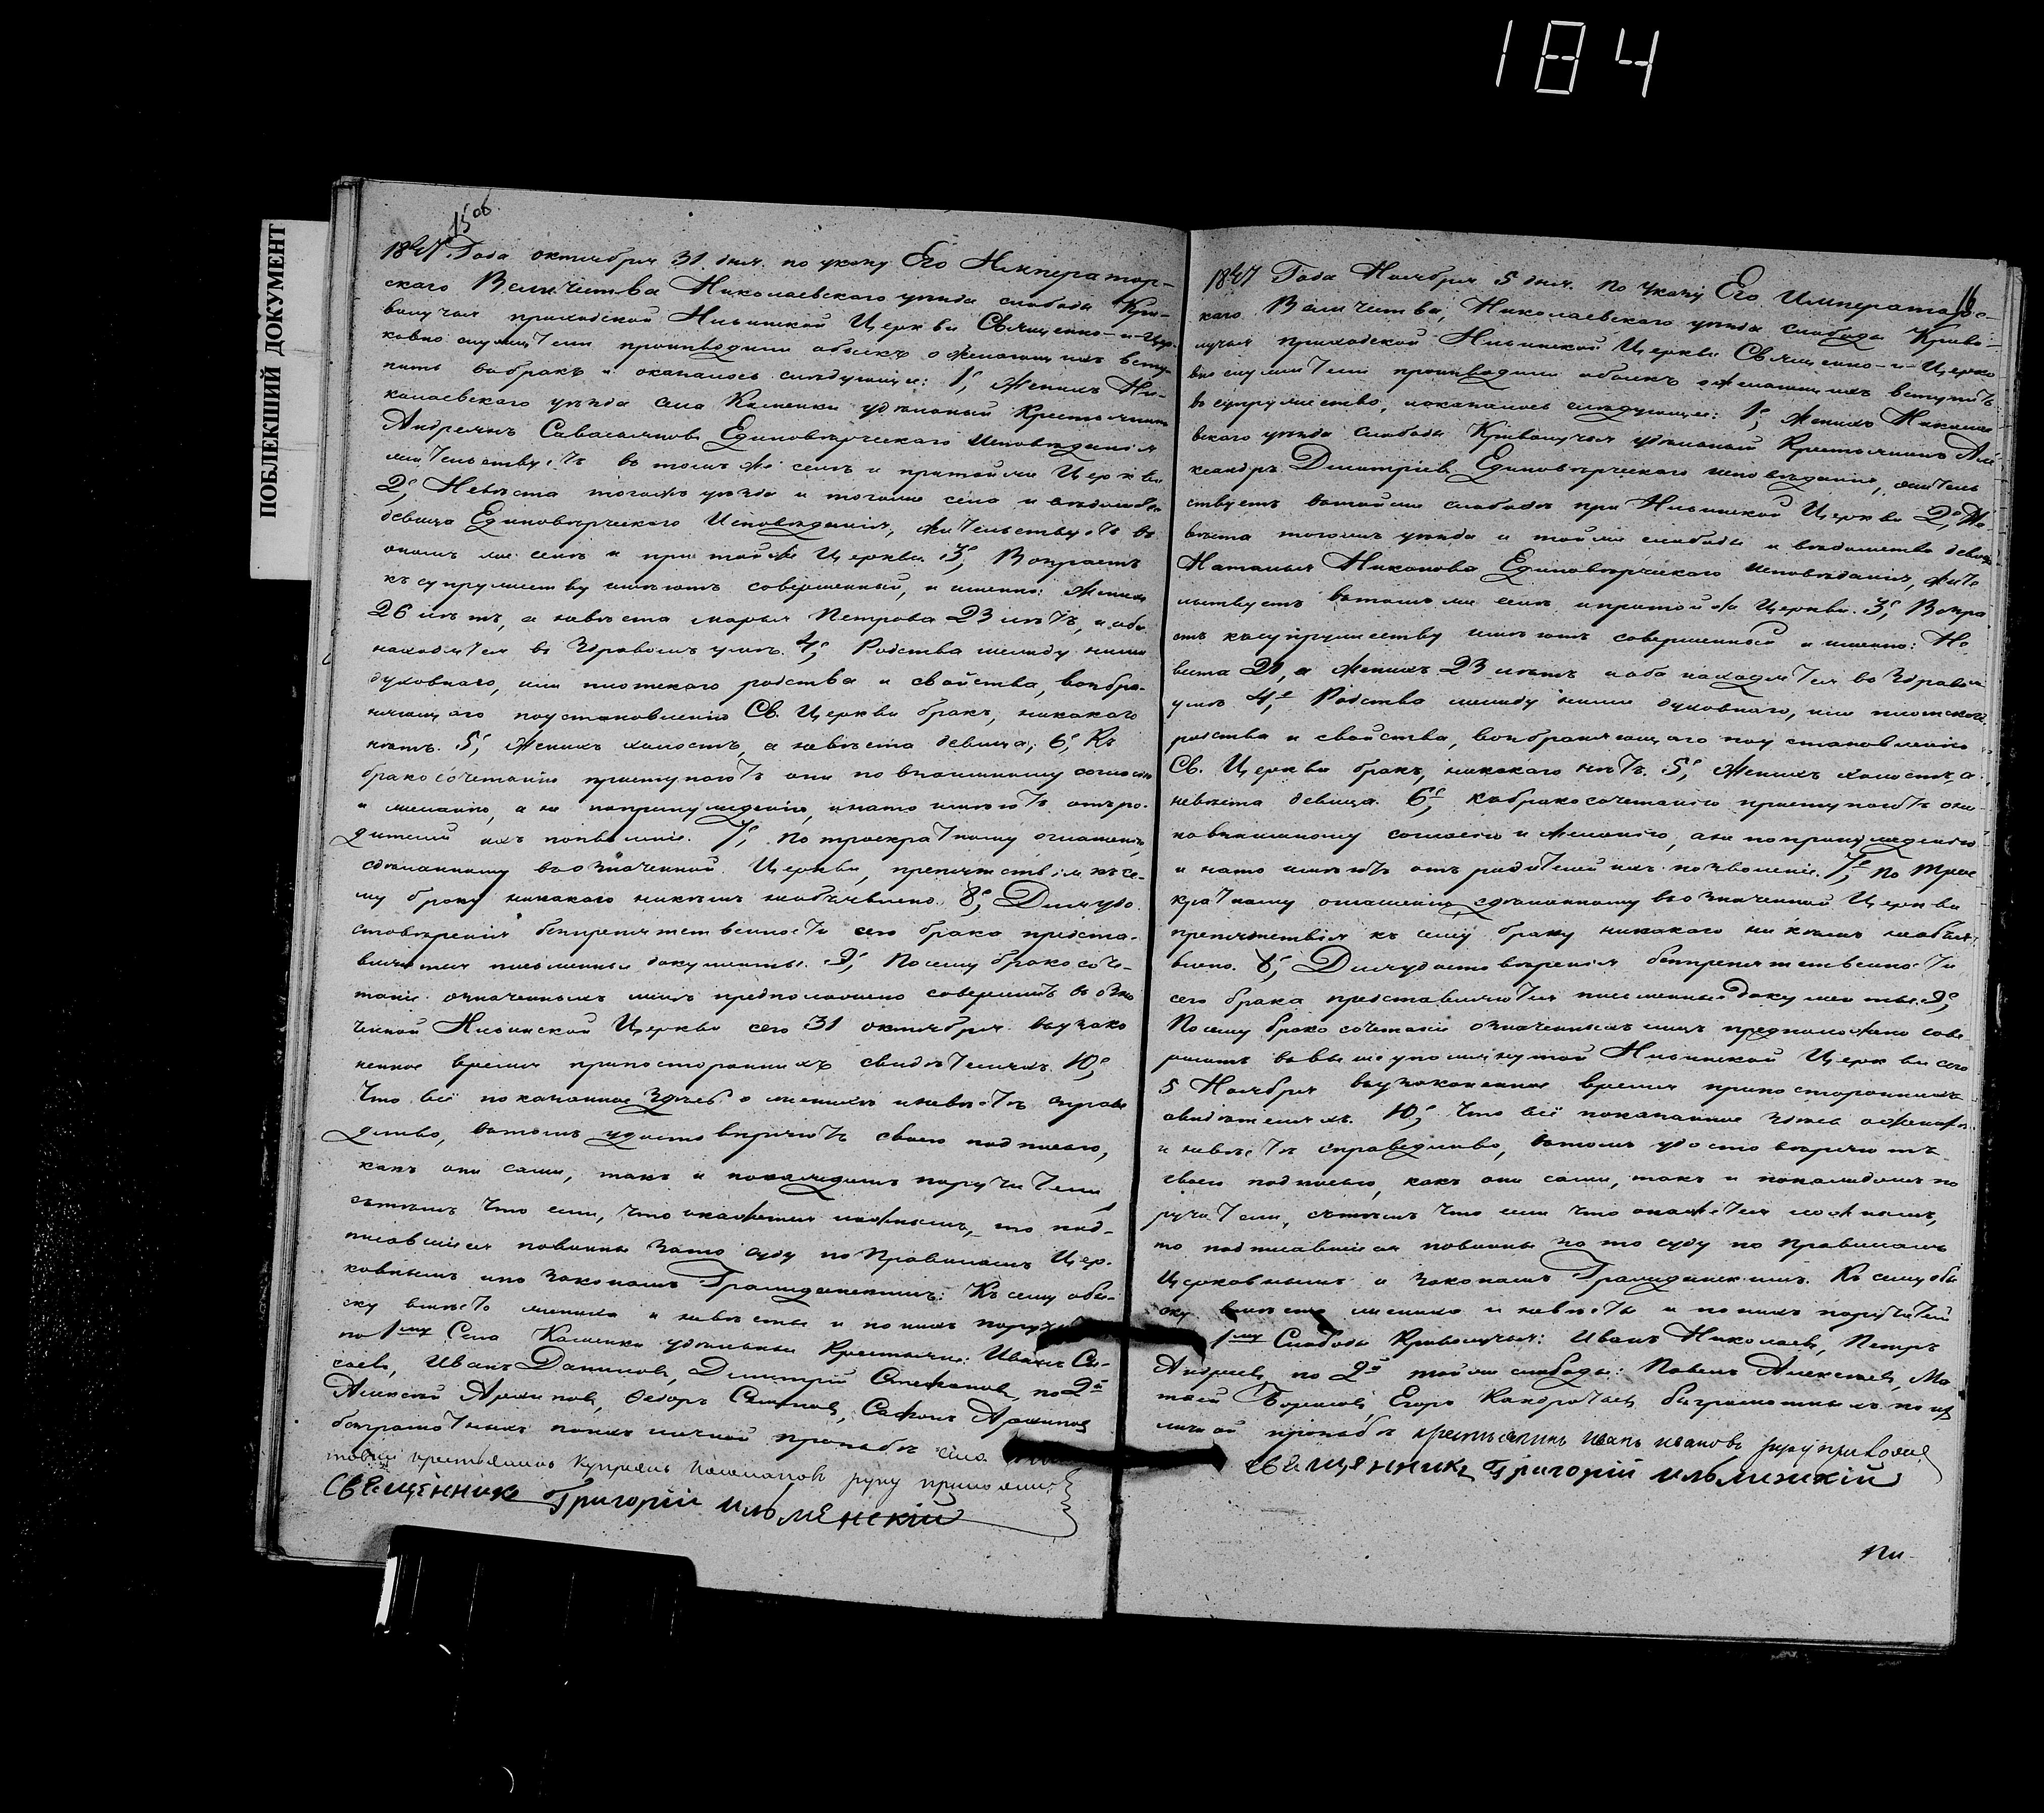 184
ПОБЛЕКШИЙ ДОКУМЕНТ
15об
1847 Года октября 31 дня. по указу Его Император-
скаго Величества Николаевского уезда слободы Кри-
волучья приходской Ильинской Церкви Священно-и-Цер-
ковно служители производили обыскъ о желающихъ всту-
пить вбракъ и оказалось следующее: 1е, Женихъ Ни-
колаевскаго уезда села Каменки удельный Крестьянинъ
Андреянъ Савастьяновъ Единоверческаго исповеданiя
жительствуетъ в томъ же селе и притойже Церкви
2е, Невеста тогожъ уезда и тогоже села и ведомства
девица Единоверческаго Исповеданiя, жительствуетъ въ
ономъ же селе и при тойже Церкви. 3е, Возрастъ
къ супружеству имеютъ совершенный, и именно: Женихъ
26 летъ, а невеста Марья Петрова 23 летъ, и оба
находятся въ здравомъ уме. 4е, Родства между ними
духовнаго, или плотскаго родства и свойства, возбра-
няющаго поустановленiю Св. Церкви бракъ, никакого
нетъ. 5е, Женихъ холостъ, а невеста девица; 6е, Къ
бракосочетанiю приступаютъ они по взаимному согласiю
и желанiю, а не попринужденiю, инато имеютъ отъ ро-
дителей ихъ позволенiе. 7е, По троекратному оглашенiю,
сделанному воозначенной Церкви, препятствiя къ се-
му браку никакого никемъ необъявлено. 8е, Для удо-
стоверенiя безпрепятственности сего брака предста-
вляются письменные документы. 9е, Посему бракосоче-
танiе означенныхъ лицъ предположено совершить въ озна-
ченной Ильинской Церкви сего 31 октября вузако
ненное время припостороннихъ свидетеляхъ. 10е,
Что всё показанное здесь о женихе иневесте справе
дливо, вътомъ удостоверяютъ своею подписью,
какъ они сами, такъ и покаждомъ поручители
сътемъ что если, что окажется ложнымъ, то под-
писавшiеся повинны зато суду по Правиламъ Цер-
ковнымъ ипо законамъ Гражданскимъ: Къ сему обы-
ску вместо жениха и невесты и по нихъ
по 1му Села Каменки удельные Крестьяне: Иванъ
Иванъ Даниловъ, Димитрiй Стефановъ, по 2й
Алексей Архиповъ, Федоръ Сафонъ Архиповъ
безграмотныхъ поихъ личной прозьбе села
крестьянинъ руку приложилъ
Священникъ Григорiй Ильменскiй
16
1847 Года Ноября 5 дня. По Указу Его Императорс-
каго Величества, Николаевскаго уезда слободы Криво-
лучья приходской Ильинской Церкви Священно-и-Церко
вно служители производили обыскъ ожелающихъ вступить
въ супружество, иоказалось следующее: 1е, Женихъ Николае
вскаго уезда слободы Криволучья удельный Крестьянинъ Але
ксандръ Дмитрiевъ Единоверческаго исповеданiя, житель
ствуетъ втойже слободе при Ильинской Церкви 2е, Не-
веста тогожъ уезда и тойже слободы и ведомства девица
Наталья Никонова Единоверческаго исповеданiя, жите
льствуетъ вътомъ же селе ипритойже Церкви. 3е, Возра
стъ къ супружеству имеютъ совершенный и именно: Не
веста 21, а Женихъ 23 летъ иоба находятся въ здравом
уме 4е, Родства между ними духовнаго, или плотскаго
родства и свойства, возбраняющаго поустановленiю
Св. Церкви бракъ, никакого нетъ. 5е, Женихъ холостъ, а
невеста девица. 6е, къбракосочетанiю приступаютъ они
повзаимному согласiю и желанiю, ане попринужденiю
и нато имеютъ отъ родителей ихъ позволенiе. 7е, По трое
кратному оглашенiю, сделанному воозначенной Церкви
препятствiя къ сему браку никакого никемъ необъя-
влено. 8е, Для удостоверенiя безпрепятственности
сего брака представляются письменные документы. 9е,
Посему бракосочетанiе означенныхъ лицъ предположено сове
ршить ввышеупомянутой Ильинской Церкви сего
5 Ноября вузаконенное время припостороннихъ
свидетеляхъ. 10е, Что всё показанное здесь ожених
и невесте справедливо, вътомъ удостоверяютъ
своею подписью, какъ они сами, такъ и покаждомъ по
ручители, сътемъ что если что окажется ложнымъ,
то подписавшiеся повинны зато суду по правиламъ
Церковнымъ и законамъ Гражданскимъ. Къ сему обы
ску вместо жениха и невесты и по нихъ поручителей
1му Слободы Криволучья: Иванъ Николаевъ, Петръ
Андреевъ, по 2й тойже слободы: Павелъ Алексеевъ, Ма
твей Борисовъ, Егоръ Кандратьевъ безграмотныхъ по их
личной прозьбе крестьянинъ иванъ ивановъ руку приложилъ
священникъ Григорiй Ильменскiй